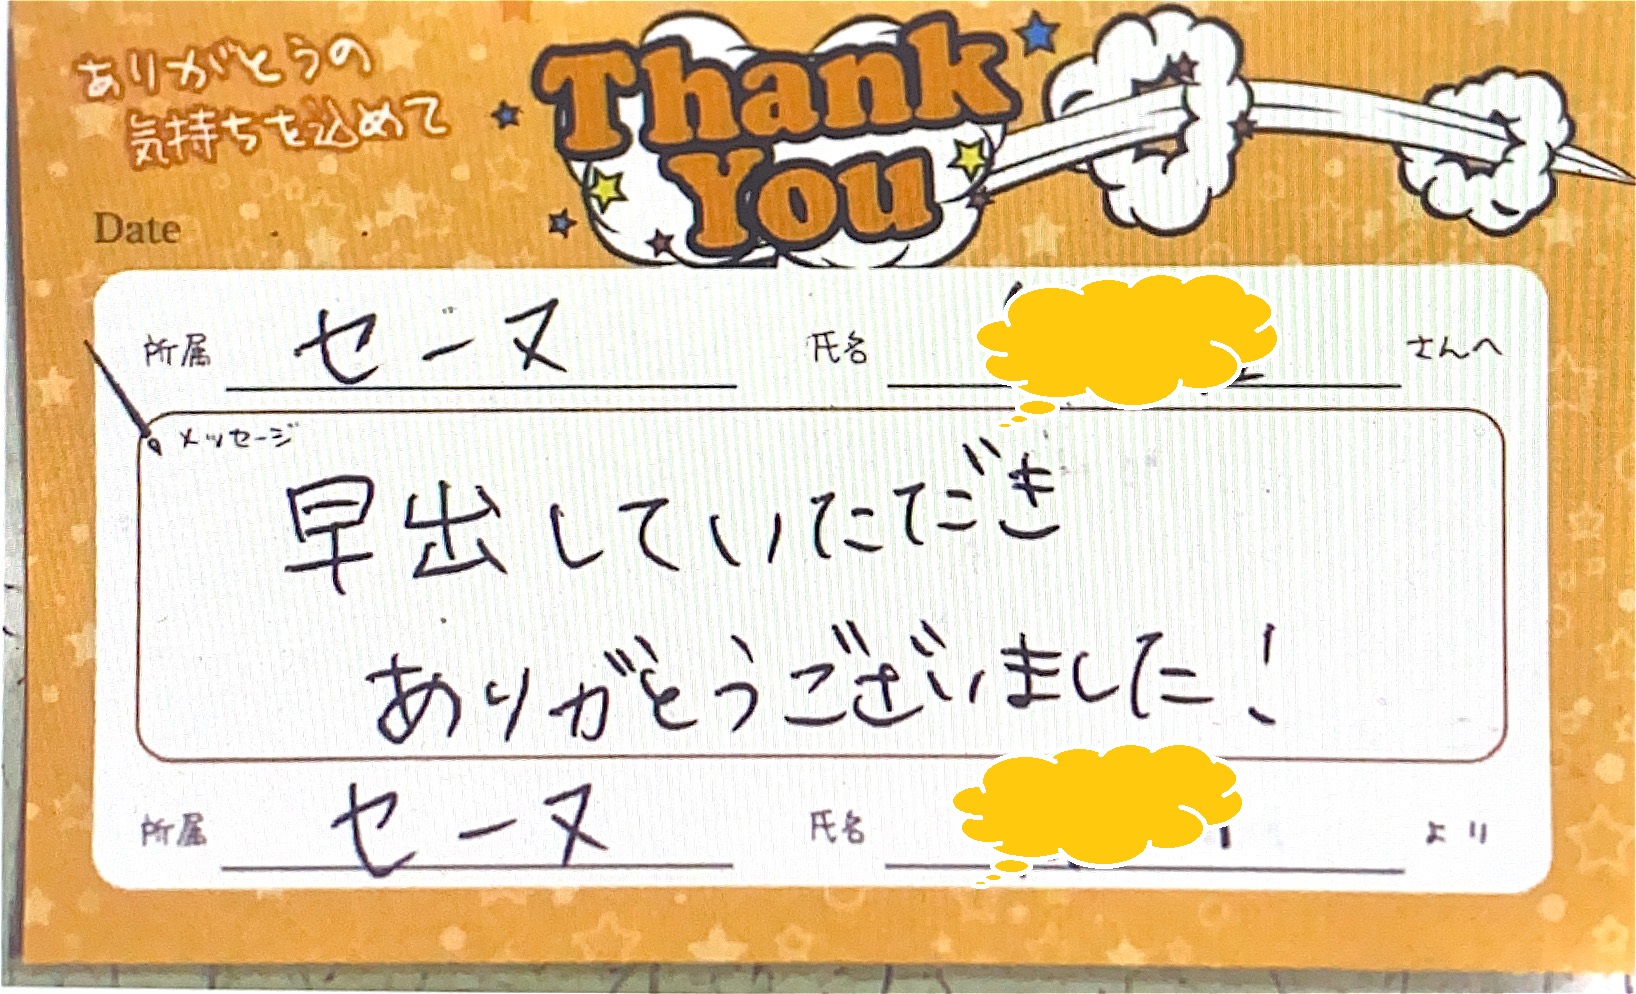 ありがとうの
気持ちを込めて
Thank
You
Date . .
所属 セーヌ 氏名 さんへ
メッセージ
早出していただき
ありがとうございました!
所属 セーヌ 氏名 より